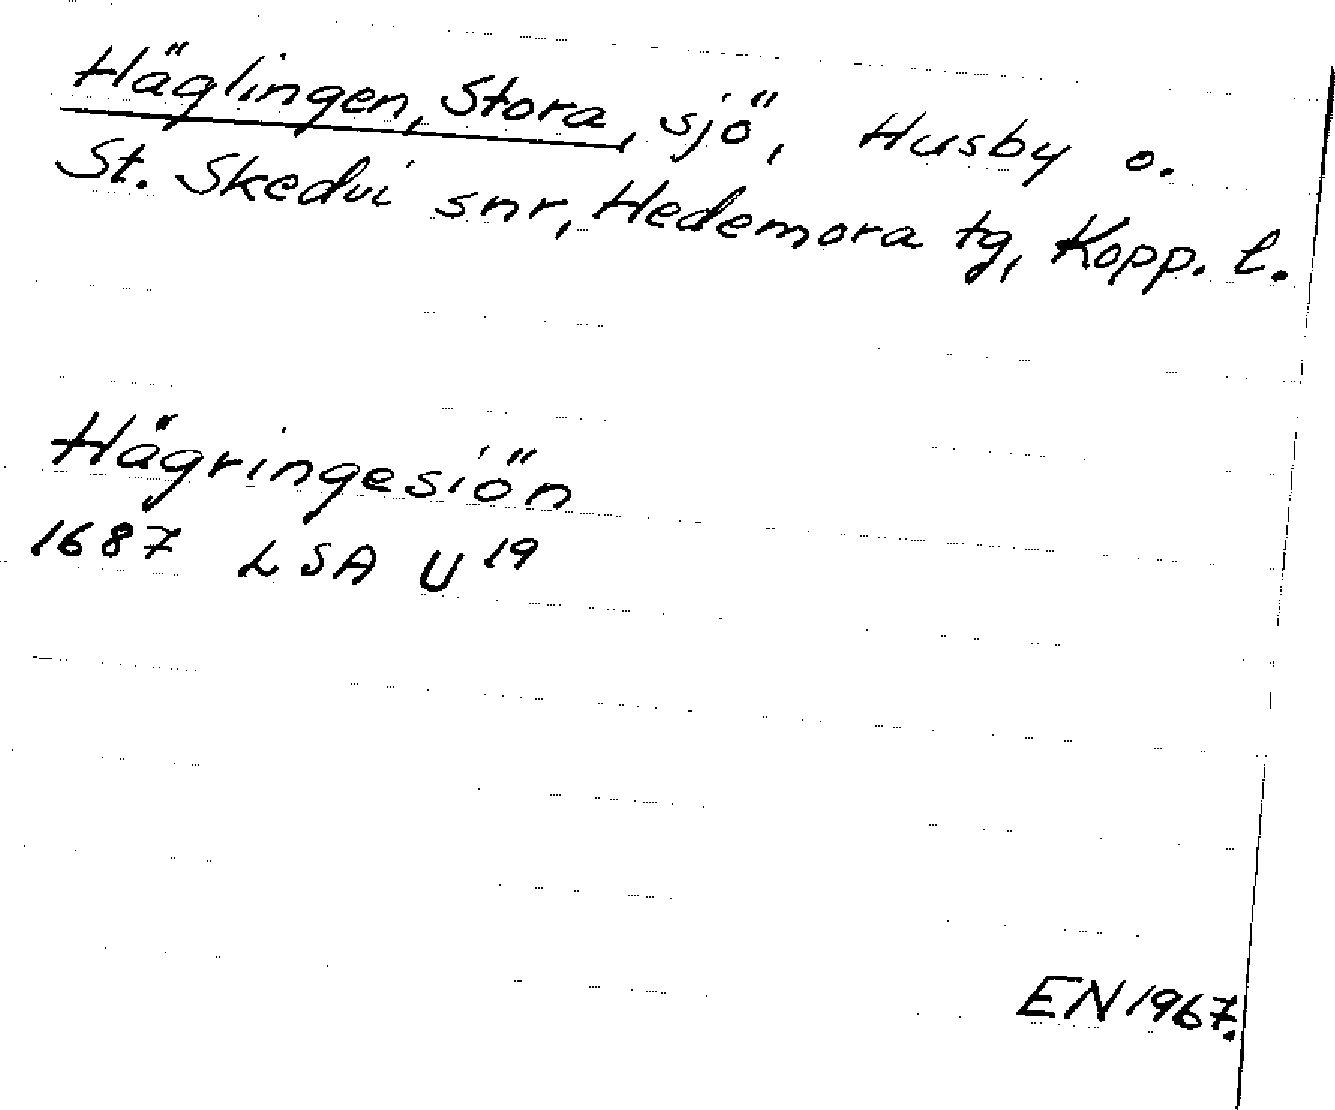 Häglingen, Stora, sjö, Husby o.
St. Skedvi snr, Hedemora tg, Kopp. l.
Hägringesiön
1687 LSA U19
EN 1967.